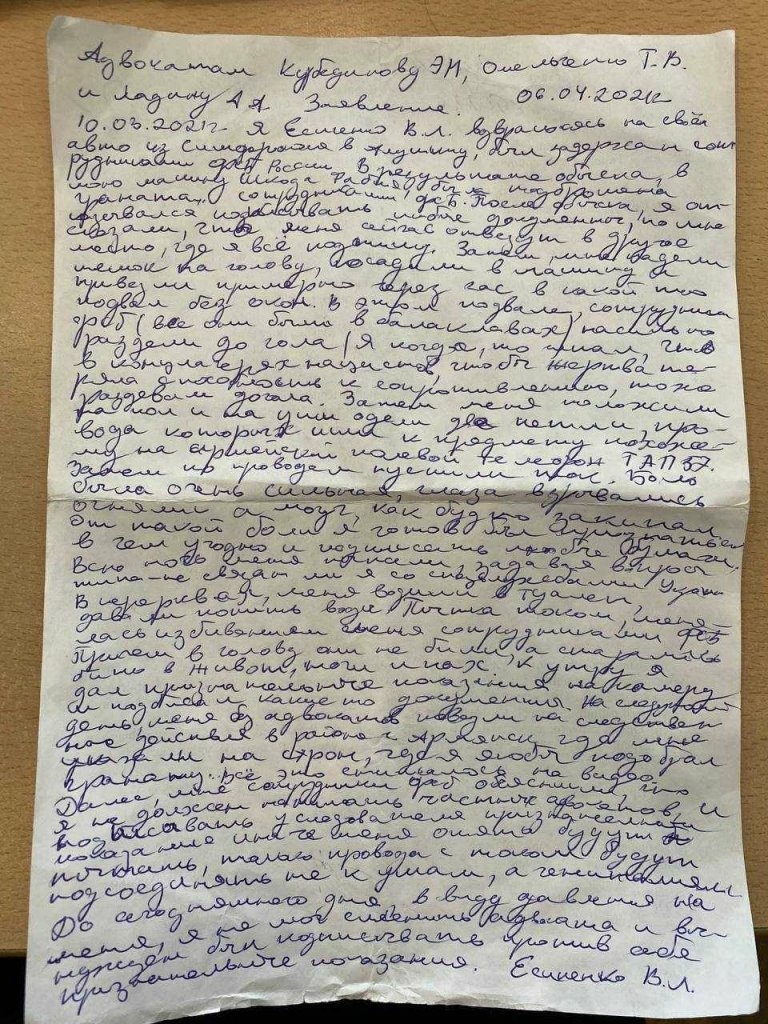 Адвокатам Курбединову Э.М, Омельченко Т.В.
и Ладину А А Заявление. 06.04.2021г
10.03.2021г Я Есипенко В.Л. возвращаясь на своём
авто из Симферополя в Алушту, был задержан сот
рудниками ФСБ России. В результате обыска, в
мою машину Шкода Фабия была подброшена
граната.. сотрудниками ФСБ. После обыска, я от
казывался подписывать любые документы, но мне
сказали, что меня сейчас отвезут в другое
место, где я всё подпишу. Затем мне надели
мешок на голову, посадили в машину и
привезли примерно через час в какой то
подвал без окон. В этом подвале, сотрудники
ФСБ (все они были в балаклавах) насильно
раздели до гола (Я когда, то читал, что
в концлагерях нацистов, чтобы жертва те-
ряла способность к сопротивлению, тоже
раздевали догола. Затем меня положили
на пол и на уши одели две петли, про-
вода которых шли к предмету похоже-
му на армейский полевой телефон ТАП 57.
Затем по проводам пустили ток. Боль
была очень сильная, глаза взрывались
огнями а мозг, как будто закипал
От такой боли я готов был признаться
в чем угодно и подписать любые бумаги.
Всю ночь меня пытали, задавая вопросы
типа - не связан ли я со спецслужбами Украины
В перерывах, меня водили в туалет,
давали попить воды. Пытка током, меня-
лась избиванием меня сотрудниками ФСБ
Причем в голову они не били, а старались
бить в живот, ноги и пах. К утру я
дал признательные показания на камеру
и подписал какие то документы. На следующий
день меня без адвоката повезли на следствен
ные действия в район г Армянск, где мне
указали на схрон, где я якобы подобрал
гранату.. всё это снималось на видео.
Далее, мне сотрудники ФСБ объяснили, что
я не должен нанимать частных адвокатов, и
подписывать у следователя признательные
показание иначе меня опять будут
пытать, только провода с током будут
подсоединять не к ушам, а гениталиям.
До сегодняшнего дня, в виду давления на
меня, я не мог сменить адвоката и вы-
нужден был подписывать против себя
признательные показания. Есипенко В.Л.